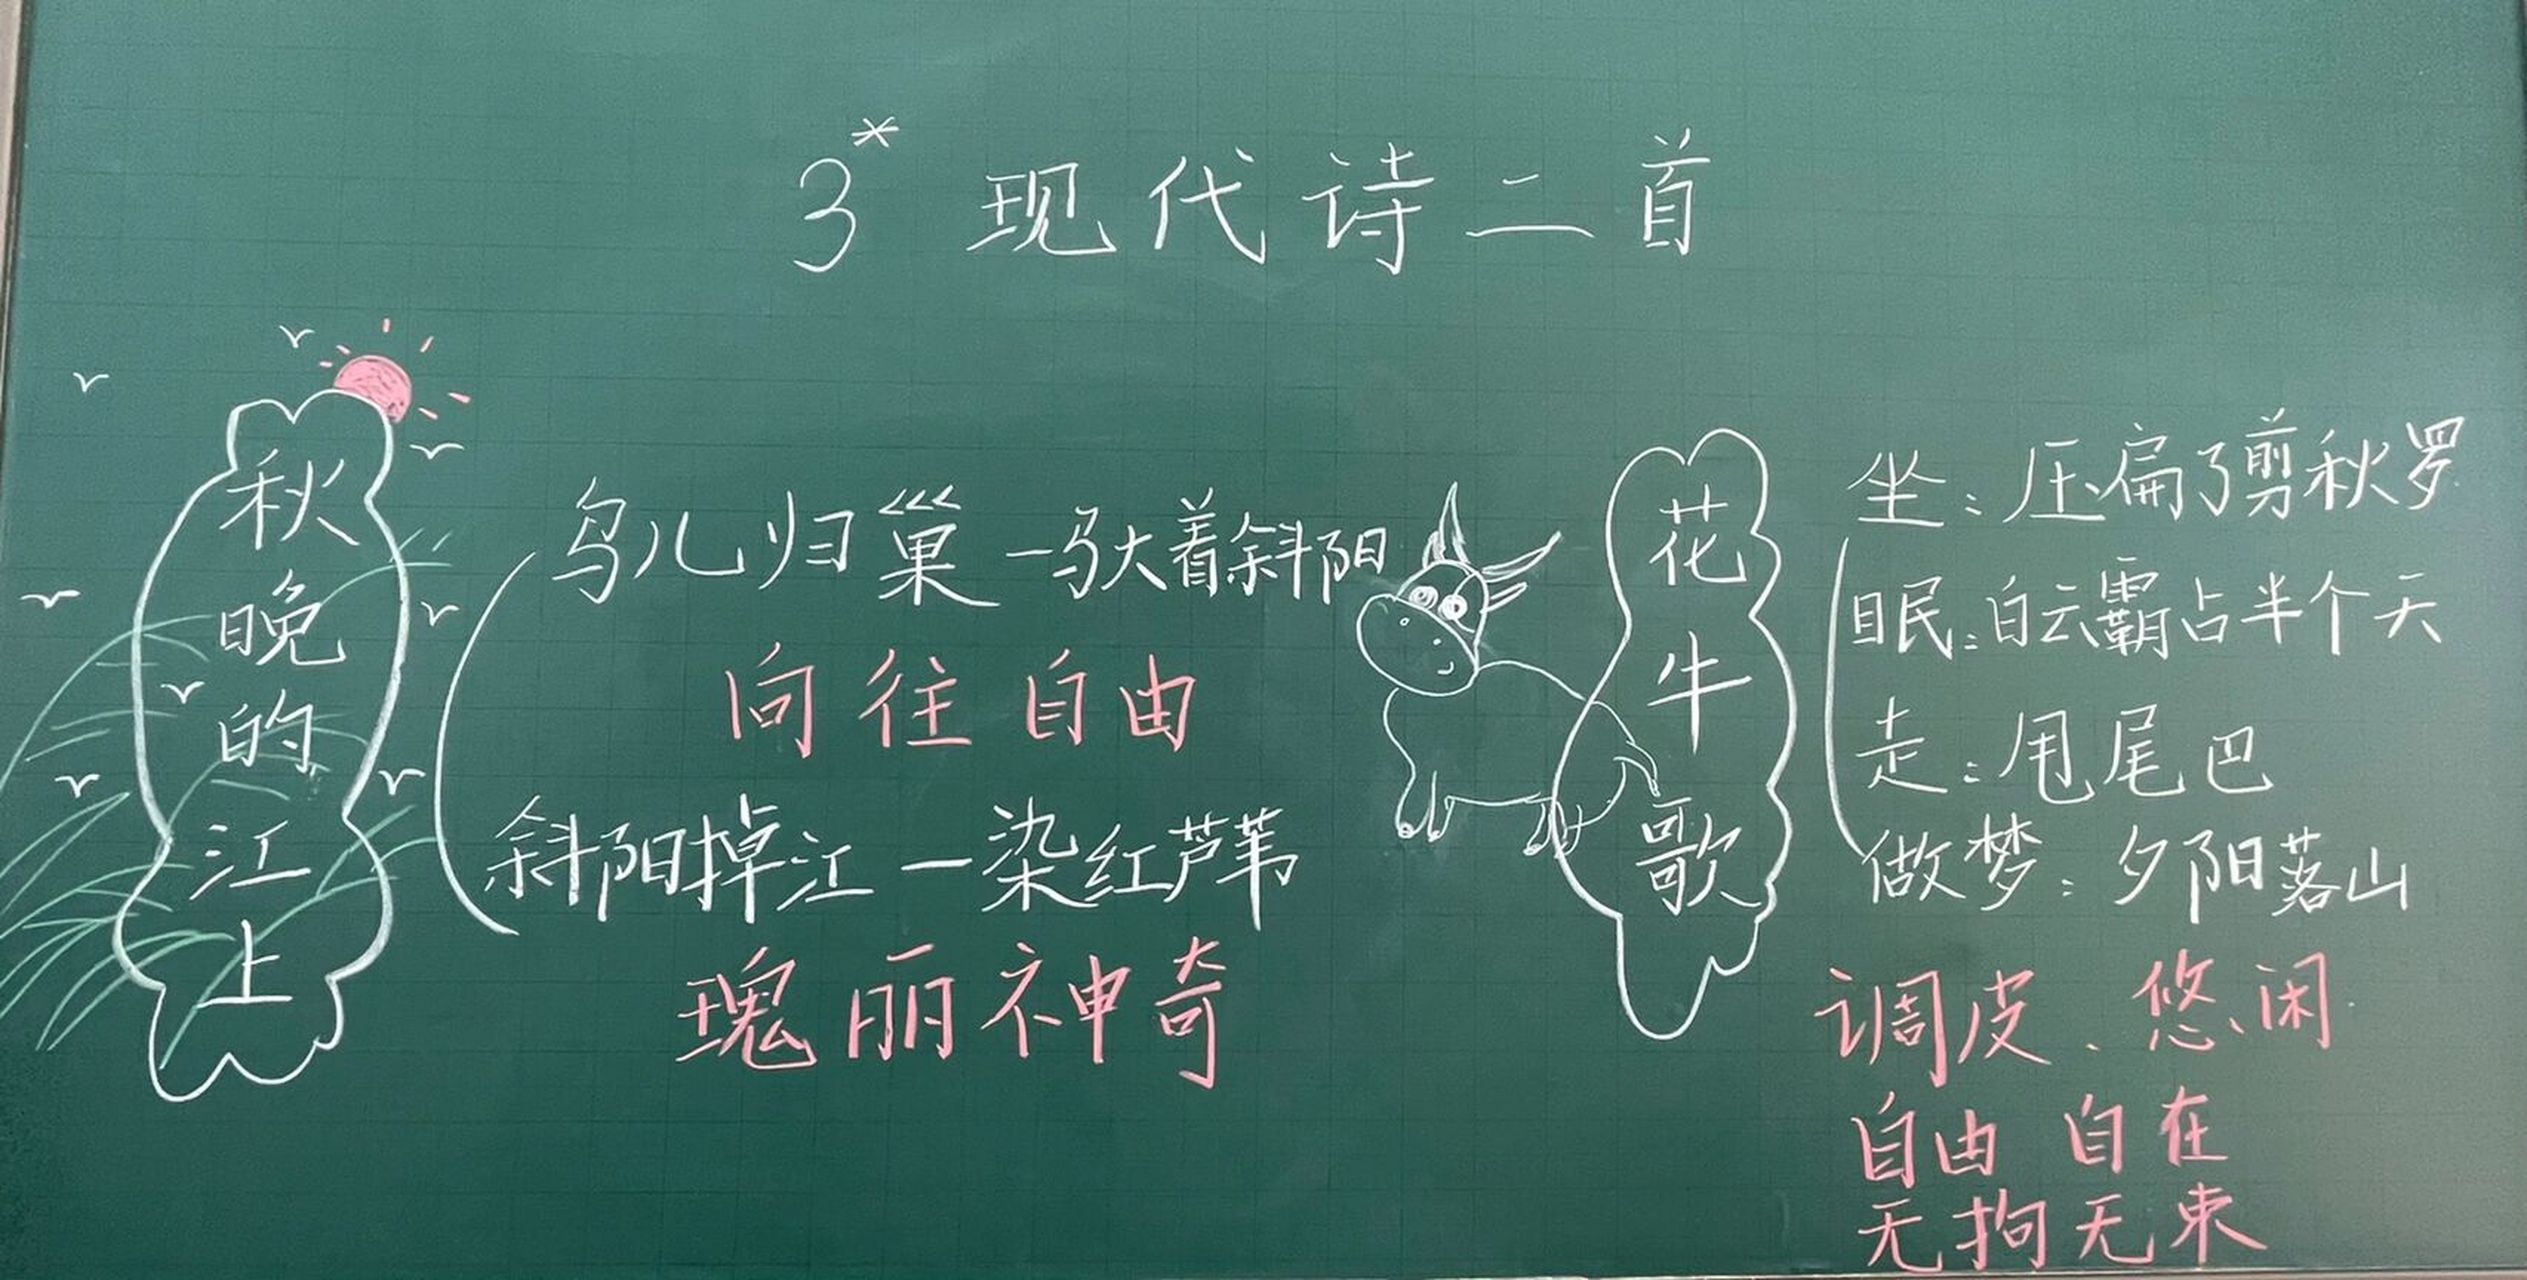 3* 现代诗二首
秋晚的江上
鸟儿归巢—驮着斜阳
向往自由
斜阳掉江—染红芦苇
瑰丽神奇
花牛歌
坐:压扁了剪秋罗
眠:白云霸占半个天
走:甩尾巴
做梦:夕阳落山
调皮、悠闲
自由 自在
无拘无束